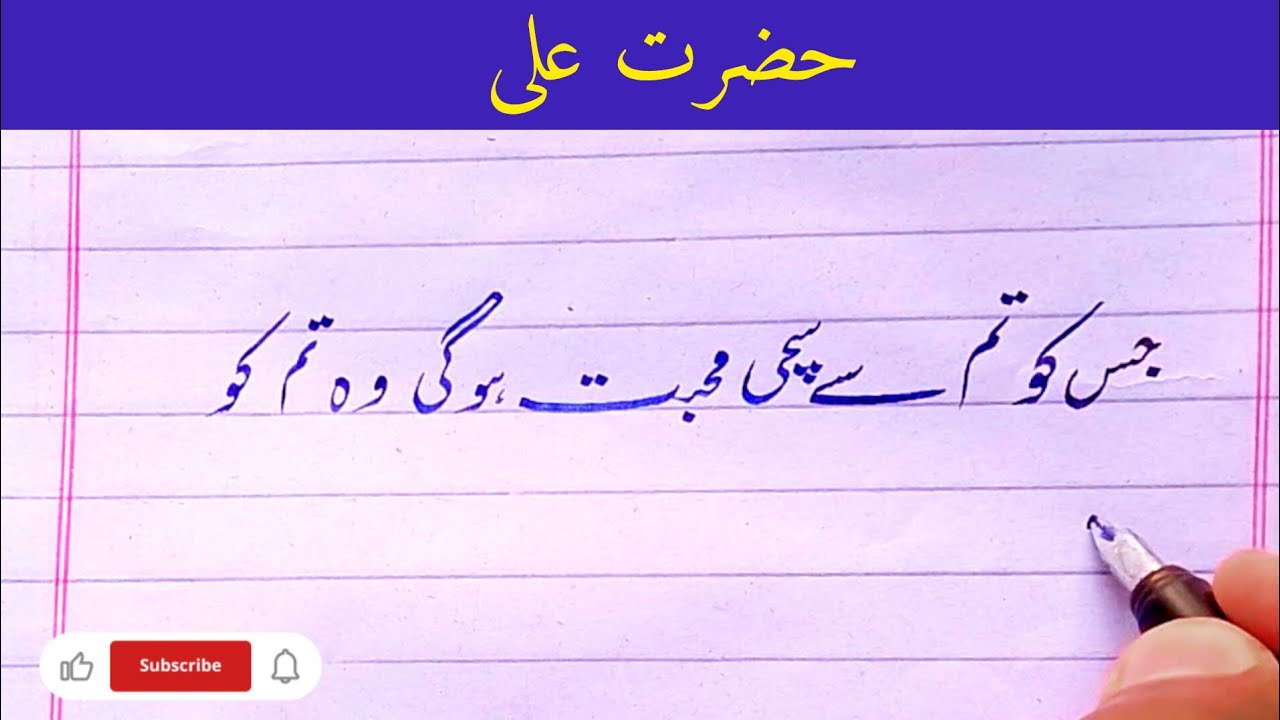 حضرت علی
جس کو تم سے سچی محبت ہوگی وہ تم کو
Subscribe